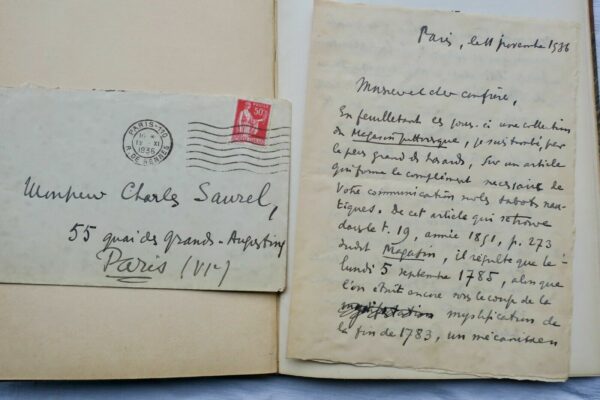 PARIS-110
R. DE RENNES
11 XI
1936
50c
Monsieur Charles Saurel,
55 quai des Grands-Augustins
Paris (VIe)
Paris, le 11 novembre 1936
Monsieur et cher confrère,
En feuilletant ces jours-ci une collection
du Magasin pittoresque, je suis tombé, par
le plus grand des hasards, sur un article
qui forme le complément necessaire de
votre communication sur les sabots nau-
tiques. De cet article qui se trouve
dans le t. 19, année 1851, p. 273
dudit Magasin, il résulte que le
lundi 5 septembre 1785, alors que
l'on était encore sous le coup de la
mystification de
la fin de 1783, un mécanicien